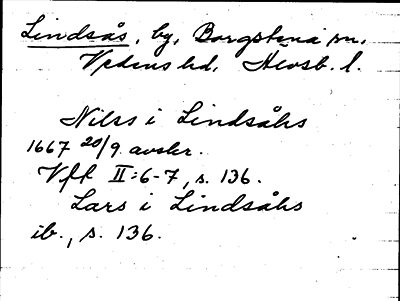 Lindsås, by, Borgstena sn,
Vedens hd, Älvsb. l.
Nilss i Lindsåhs
1667 20/9 avskr.
Vff II:6-7, s. 136.
Lars i Lindsåhs
ib., s. 136.